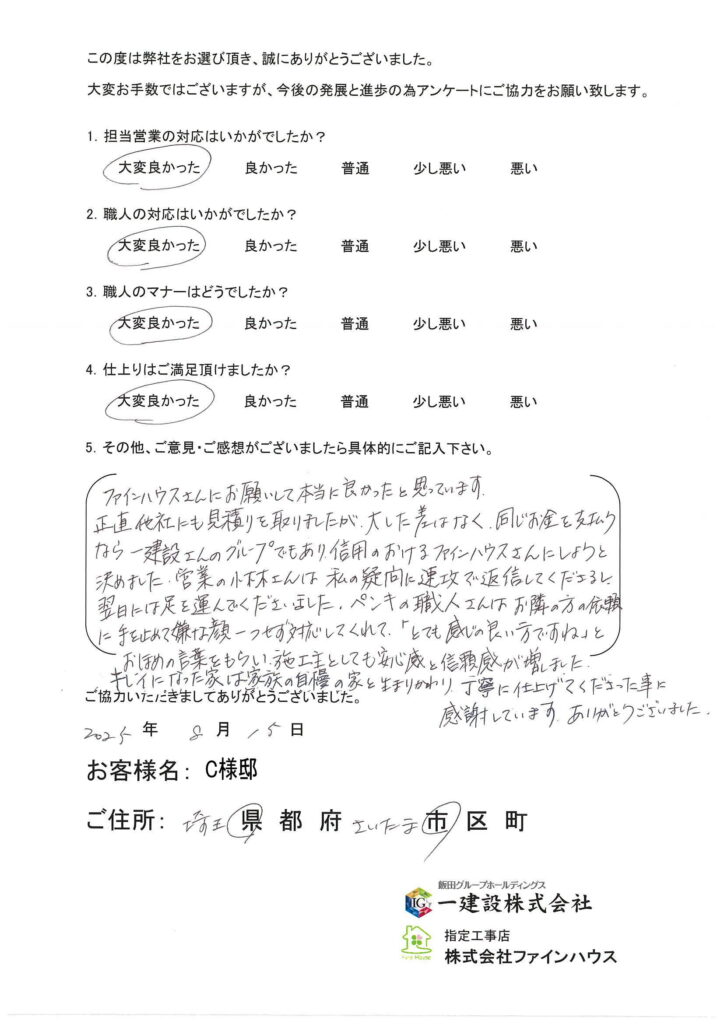 この度は弊社をお選び頂き、誠にありがとうございました。
大変お手数ではございますが、今後の発展と進歩の為アンケートにご協力をお願い致します。
1. 担当営業の対応はいかがでしたか？
大変良かった 良かった 普通 少し悪い 悪い
2. 職人の対応はいかがでしたか？
大変良かった 良かった 普通 少し悪い 悪い
3. 職人のマナーはどうでしたか？
大変良かった 良かった 普通 少し悪い 悪い
4. 仕上りはご満足頂けましたか？
大変良かった 良かった 普通 少し悪い 悪い
5. その他、ご意見・ご感想がございましたら具体的にご記入下さい。
ファインハウスさんにお願いして本当に良かったと思っています。
正直他社にも見積りを取りましたが、大した差はなく、同じお金を支払う
なら一建設さんのグループでもあり、信用のおけるファインハウスさんにしようと
決めました。営業の小林さんは私の疑問に速攻で返信してくださるし、
翌日には足を運んでくださいました。ペンキの職人さんはお隣の方の依頼
に手を止めて嫌な顔一つせず対応してくれて、「とても感じの良い方ですね」と
おほめの言葉をもらい、施工主としても安心感と信頼感が増しました。
キレイになった家は家族の自慢の家と生まりかわり、丁寧に仕上げてくださった事に
感謝しています。ありがとうございました。
ご協力いただきましてありがとうございました。
2025 年 8 月 15 日
お客様名： C様邸
ご住所： 埼玉 県 都 府 さいたま 市 区 町
飯田グループホールディングス
IG
一建設株式会社
指定工事店
Fine House
株式会社ファインハウス